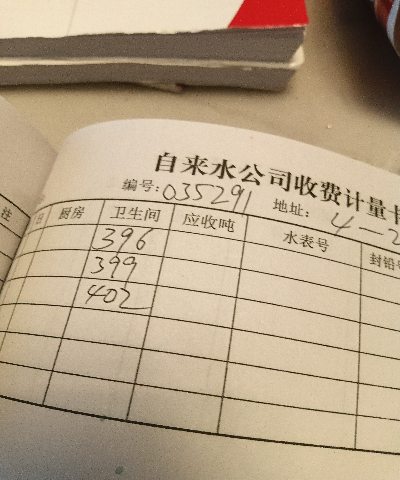 自来水公司收费计量卡
编号:035291 地址: 4-2
注 日 厨房 卫生间 应收吨 水表号 封铅号
396
399
402